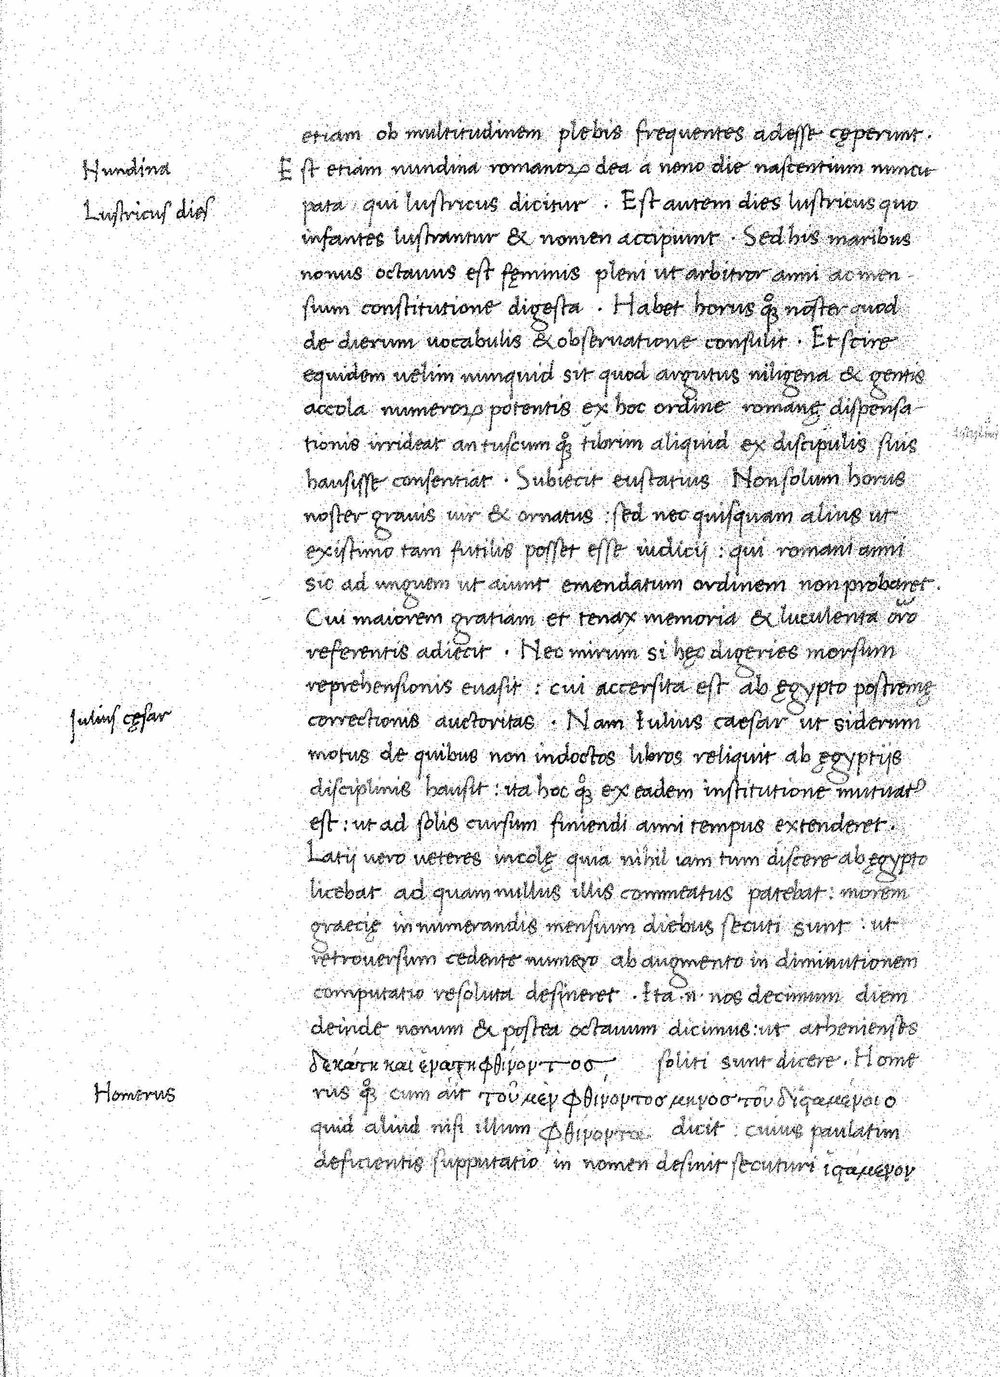 etiam ob multitudinem plebis frequentes adesse cęperunt.
Nundina
Est etiam nundina romanoꝝ dea a nono die nascentium nuncu
Lustricus dies
pata qui lustricus dicitur . Est autem dies lustricus quo
infantes lustrantur & nomen accipiunt . Sed his maribus
nonus octauus est fęminis pleni ut arbitror anni ac men-
sium constitutione digesta . Habet horus qȝ noster quod
de dierum uocabulis & obseruatione consulit . Et scire
equidem uelim nunquid sit quod argutus niligena & gentis
accola numeroꝝ potentis ex hoc ordine romanę dispensa-
tionis irrideat an tuscum qȝ tibrim aliquid ex discipulis suis
hausisse consentiat . Subiecit eustatius Non solum horus
noster grauis uir & ornatus : sed nec quisquam alius ut
existimo tam futilis posset esse iudicij : qui romani anni
sic ad unguem ut aiunt emendatum ordinem non probaret.
Cui maiorem gratiam et tenax memoria & luculenta oro
referentis adiecit . Nec mirum si hęc digeries morsum
reprehensionis euasit : cui accersita est ab ęgypto postremę
Julius cęsar
correctionis auctoritas . Nam Iulius caesar ut siderum
motus de quibus non indoctos libros reliquit ab ęgyptijs
disciplinis hausit : ita hoc qȝ ex eadem institutione mutuatꝰ
est : ut ad solis cursum finiendi anni tempus extenderet .
Latij uero ueteres incolę quia nihil iam tum discere ab ęgypto
licebat ad quam nullus illis commeatus patebat : morem
graecię in numerandis mensium diebus secuti sunt : ut
retrouersum cedente numero ab augmento in diminutionem
computatio resoluta desineret . Ita .n. nos decimum diem
deinde nonum & postea octauum dicimus : ut athenienses
δεκατη και ενατη φθινοντος soliti sunt dicere . Home
Homerus
rus qȝ cum ait του μεν φθινοντος μηνος του δ'ισαμενοιο
quid aliud nisi illum φθινοντα dicit : cuius paulatim
deficientis supputatio in nomen desinit secuturi ισαμενον